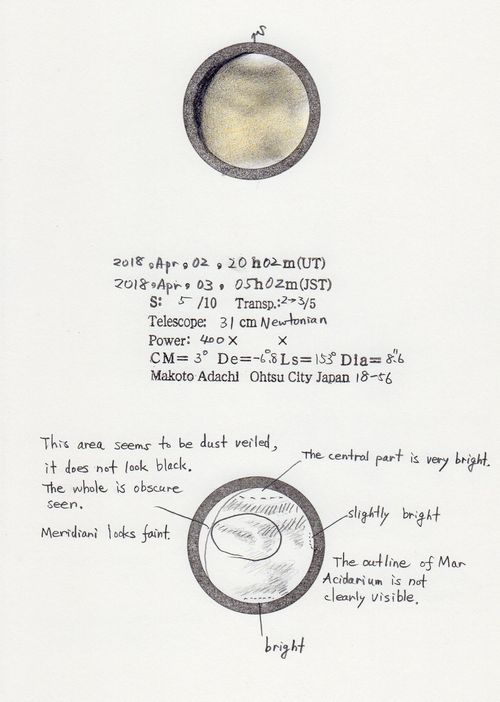 S
2018, Apr, 02, 20h02m(UT)
2018, Apr, 03, 05h02m(JST)
S: 5 /10 Transp.:2→3/5
Telescope: 31 cm Newtonian
Power: 400 × ×
CM= 3° De=-6.°8 Ls=153° Dia= 8."6
Makoto Adachi Ohtsu City Japan 18-56
This area seems to be dust veiled,
it does not look black.
The whole is obscure
seen.
Meridiani looks faint.
The central part is very bright.
slightly bright
The outline of Mar
Acidarium is not
clearly visible.
bright